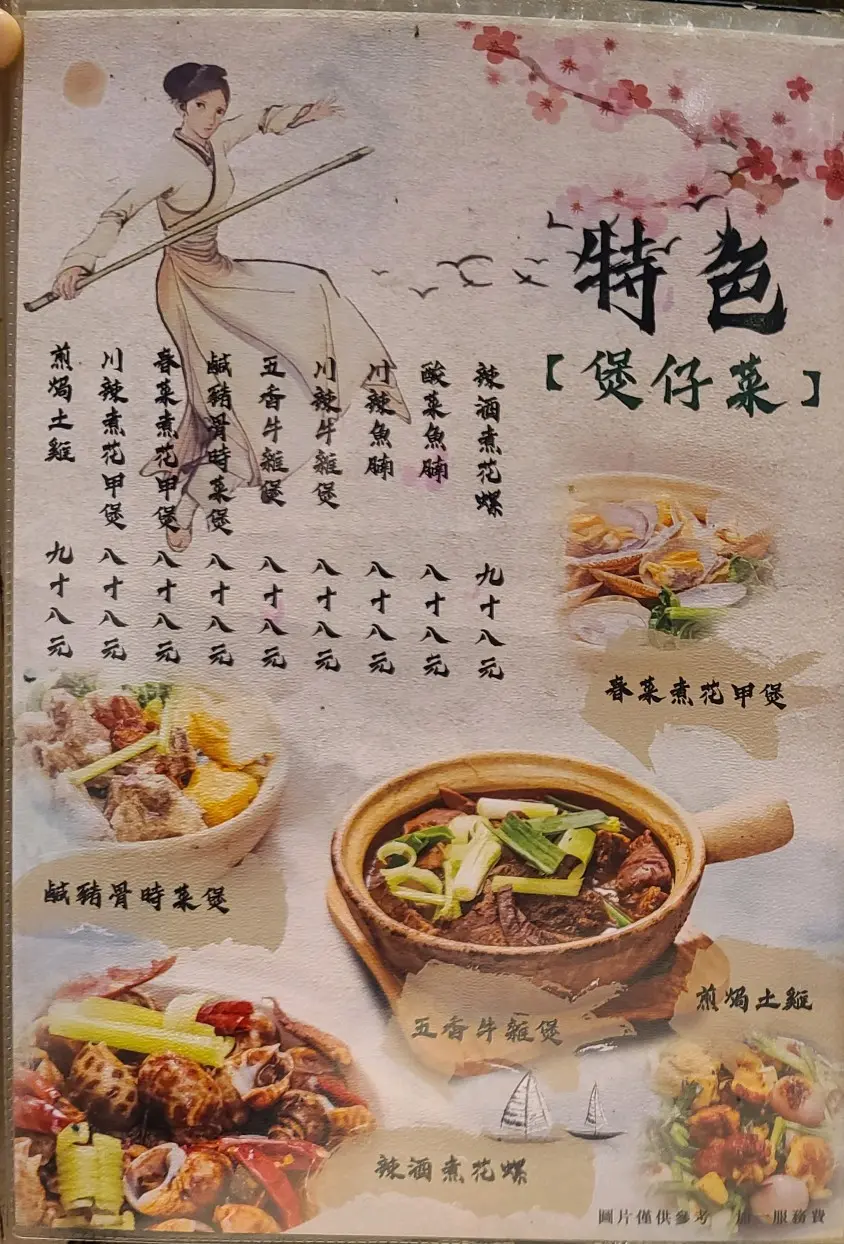 特色
【煲仔菜】
辣酒煮花螺 九十八元
酸菜魚腩 八十八元
川辣魚腩 八十八元
川辣牛雜煲 八十八元
五香牛雜煲 八十八元
鹹豬骨時菜煲 八十八元
春菜煮花甲煲 八十八元
川辣煮花甲煲 八十八元
煎焗土雞 九十八元
春菜煮花甲煲
鹹豬骨時菜煲
五香牛雜煲
煎焗土雞
辣酒煮花螺
圖片僅供參考 加一服務費